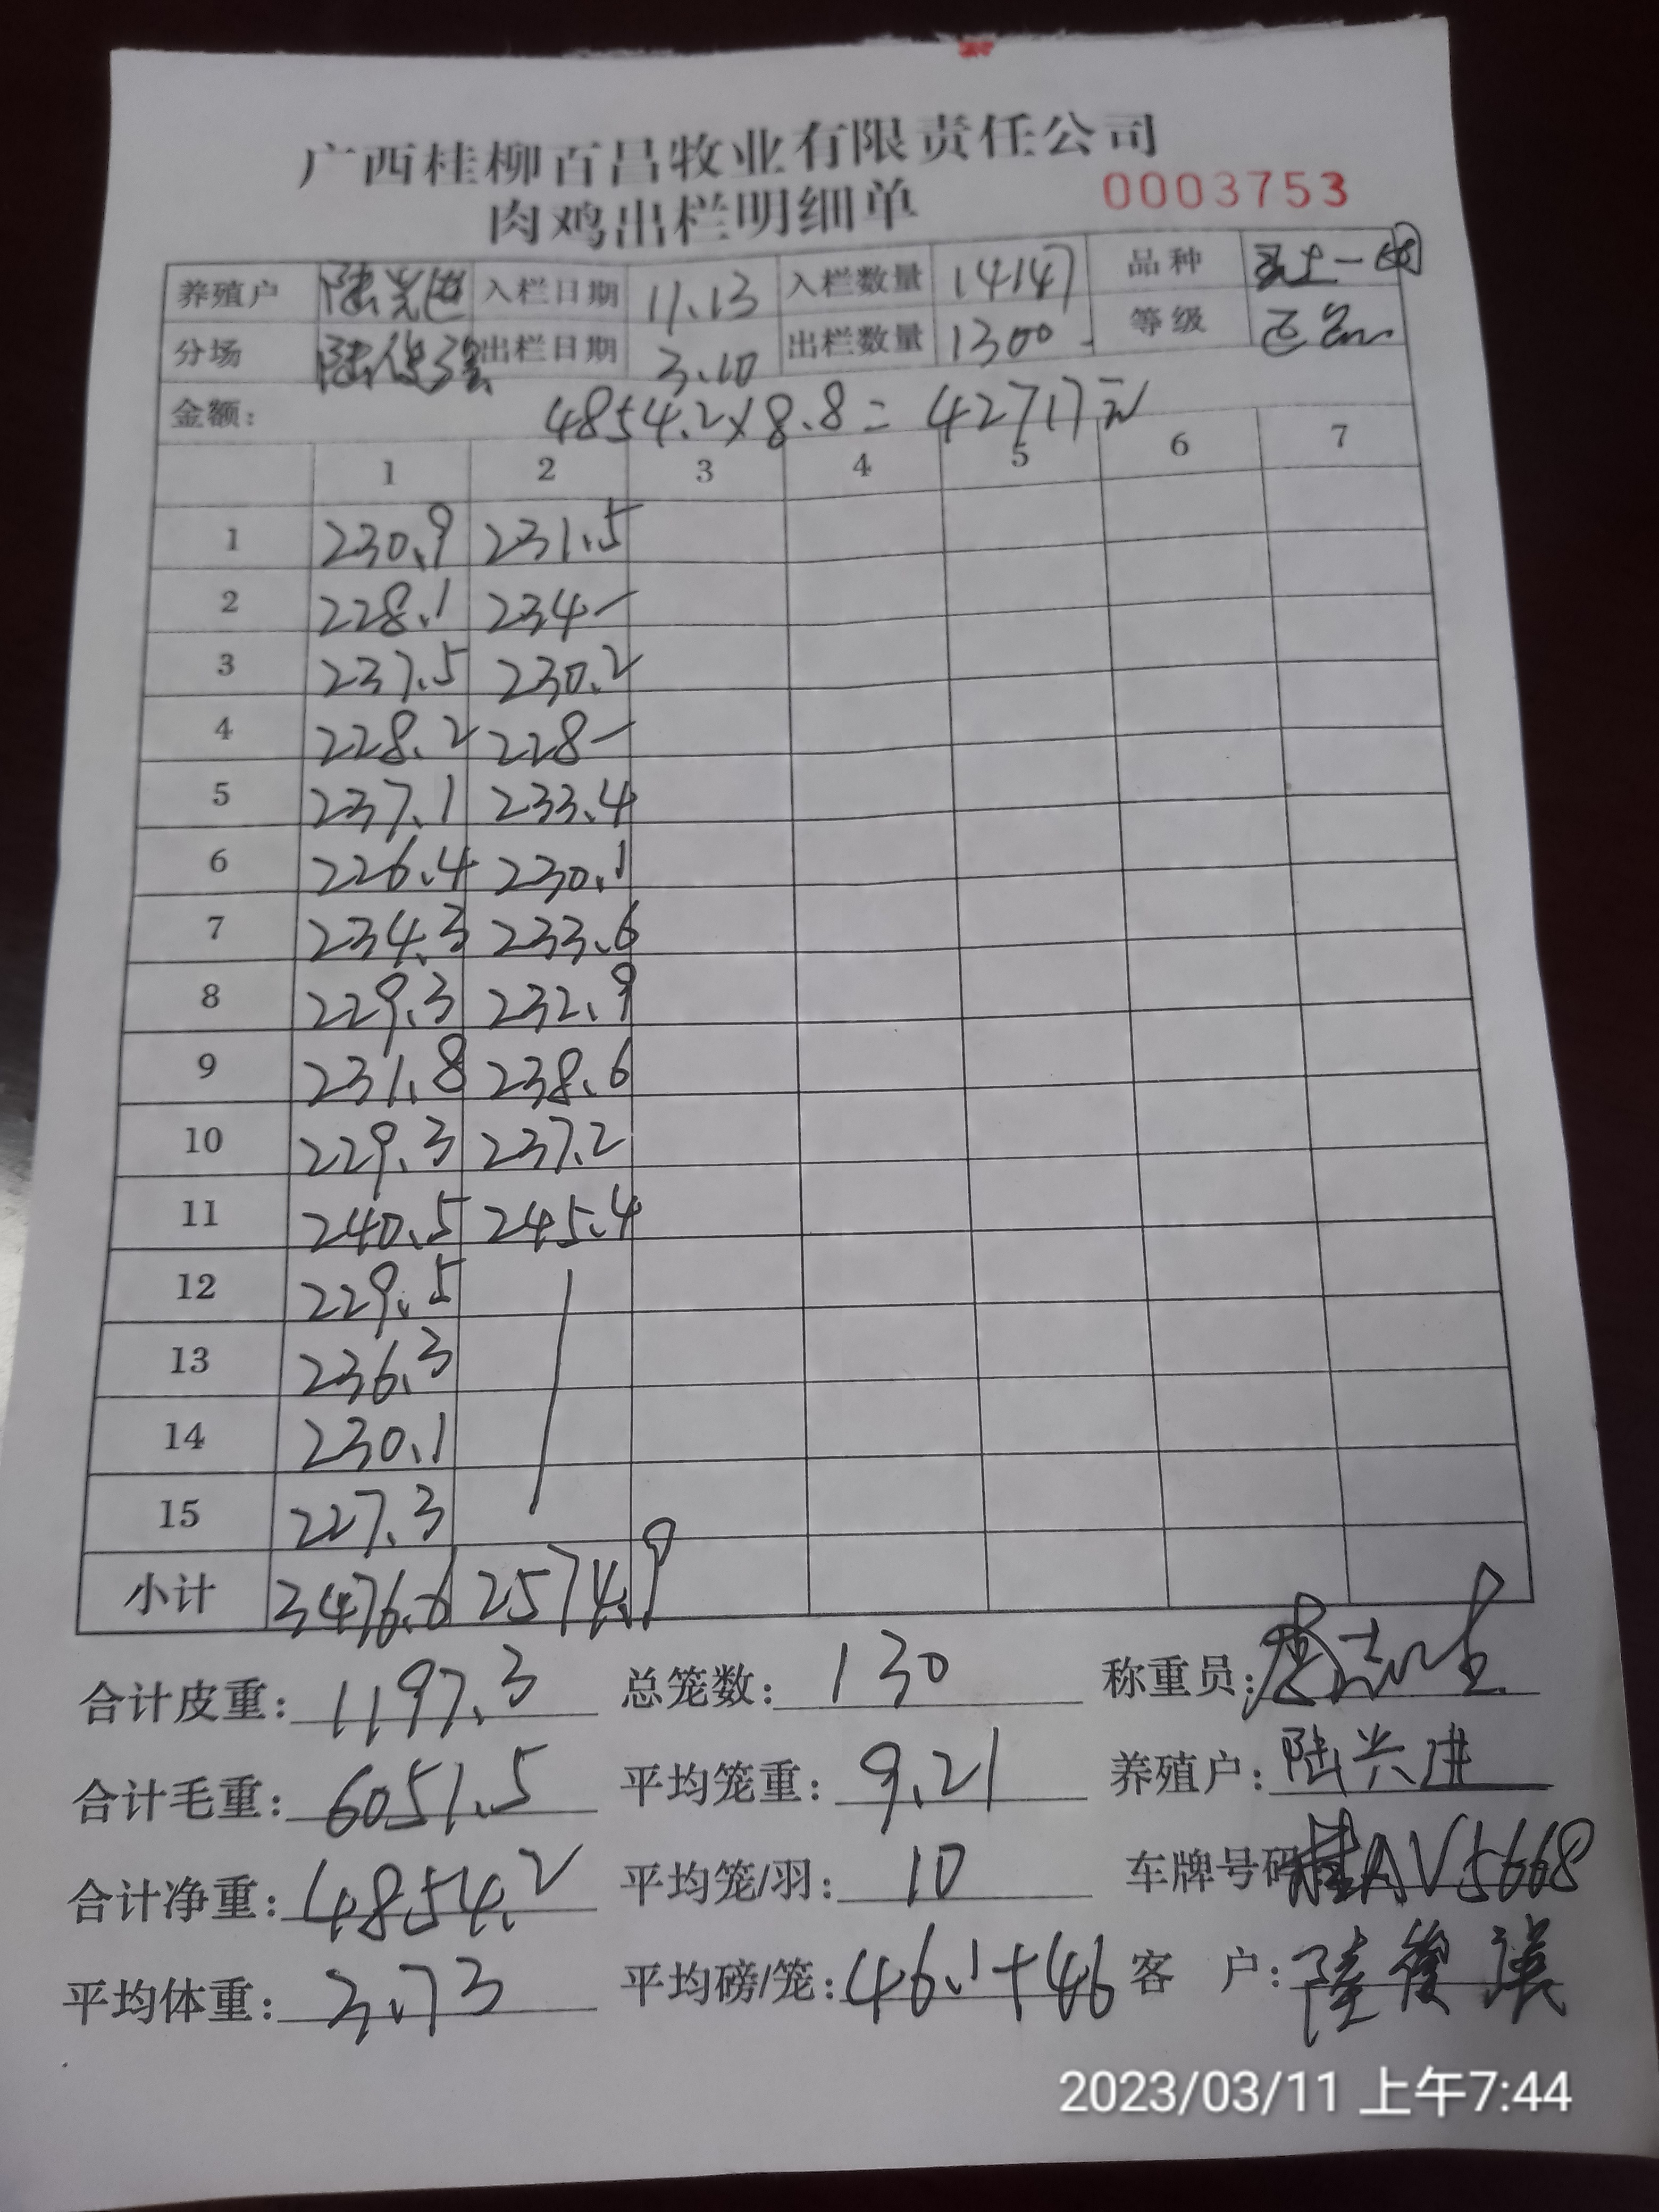 广西桂柳百昌牧业有限责任公司
肉鸡出栏明细单 0003753
养殖户 陆兴进 入栏日期 11.13 入栏数量 14147 品种
分场 出栏日期 3.10 出栏数量 1300 等级
金额: 4854.2×8.8=42717元
1 2 3 4 5 6 7
1 230.9 231.5
2 228.1 234-
3 237.5 230.2
4 228.2 228-
5 237.1 233.4
6 226.4 230.1
7 234.3 233.6
8 229.3 232.9
9 231.8 238.6
10 229.3 237.2
11 240.5 245.4
12 229.5
13 236.3
14 230.1
15 227.3
小计 3476.6 2574.9
合计皮重: 1197.3 总笼数: 130 称重员:
合计毛重: 6051.5 平均笼重: 9.21 养殖户: 陆兴进
合计净重: 4854.2 平均笼/羽: 10 车牌号码 桂AV5668
平均体重: 3.73 平均磅/笼: 46.1+46 客 户:
2023/03/11 上午7:44